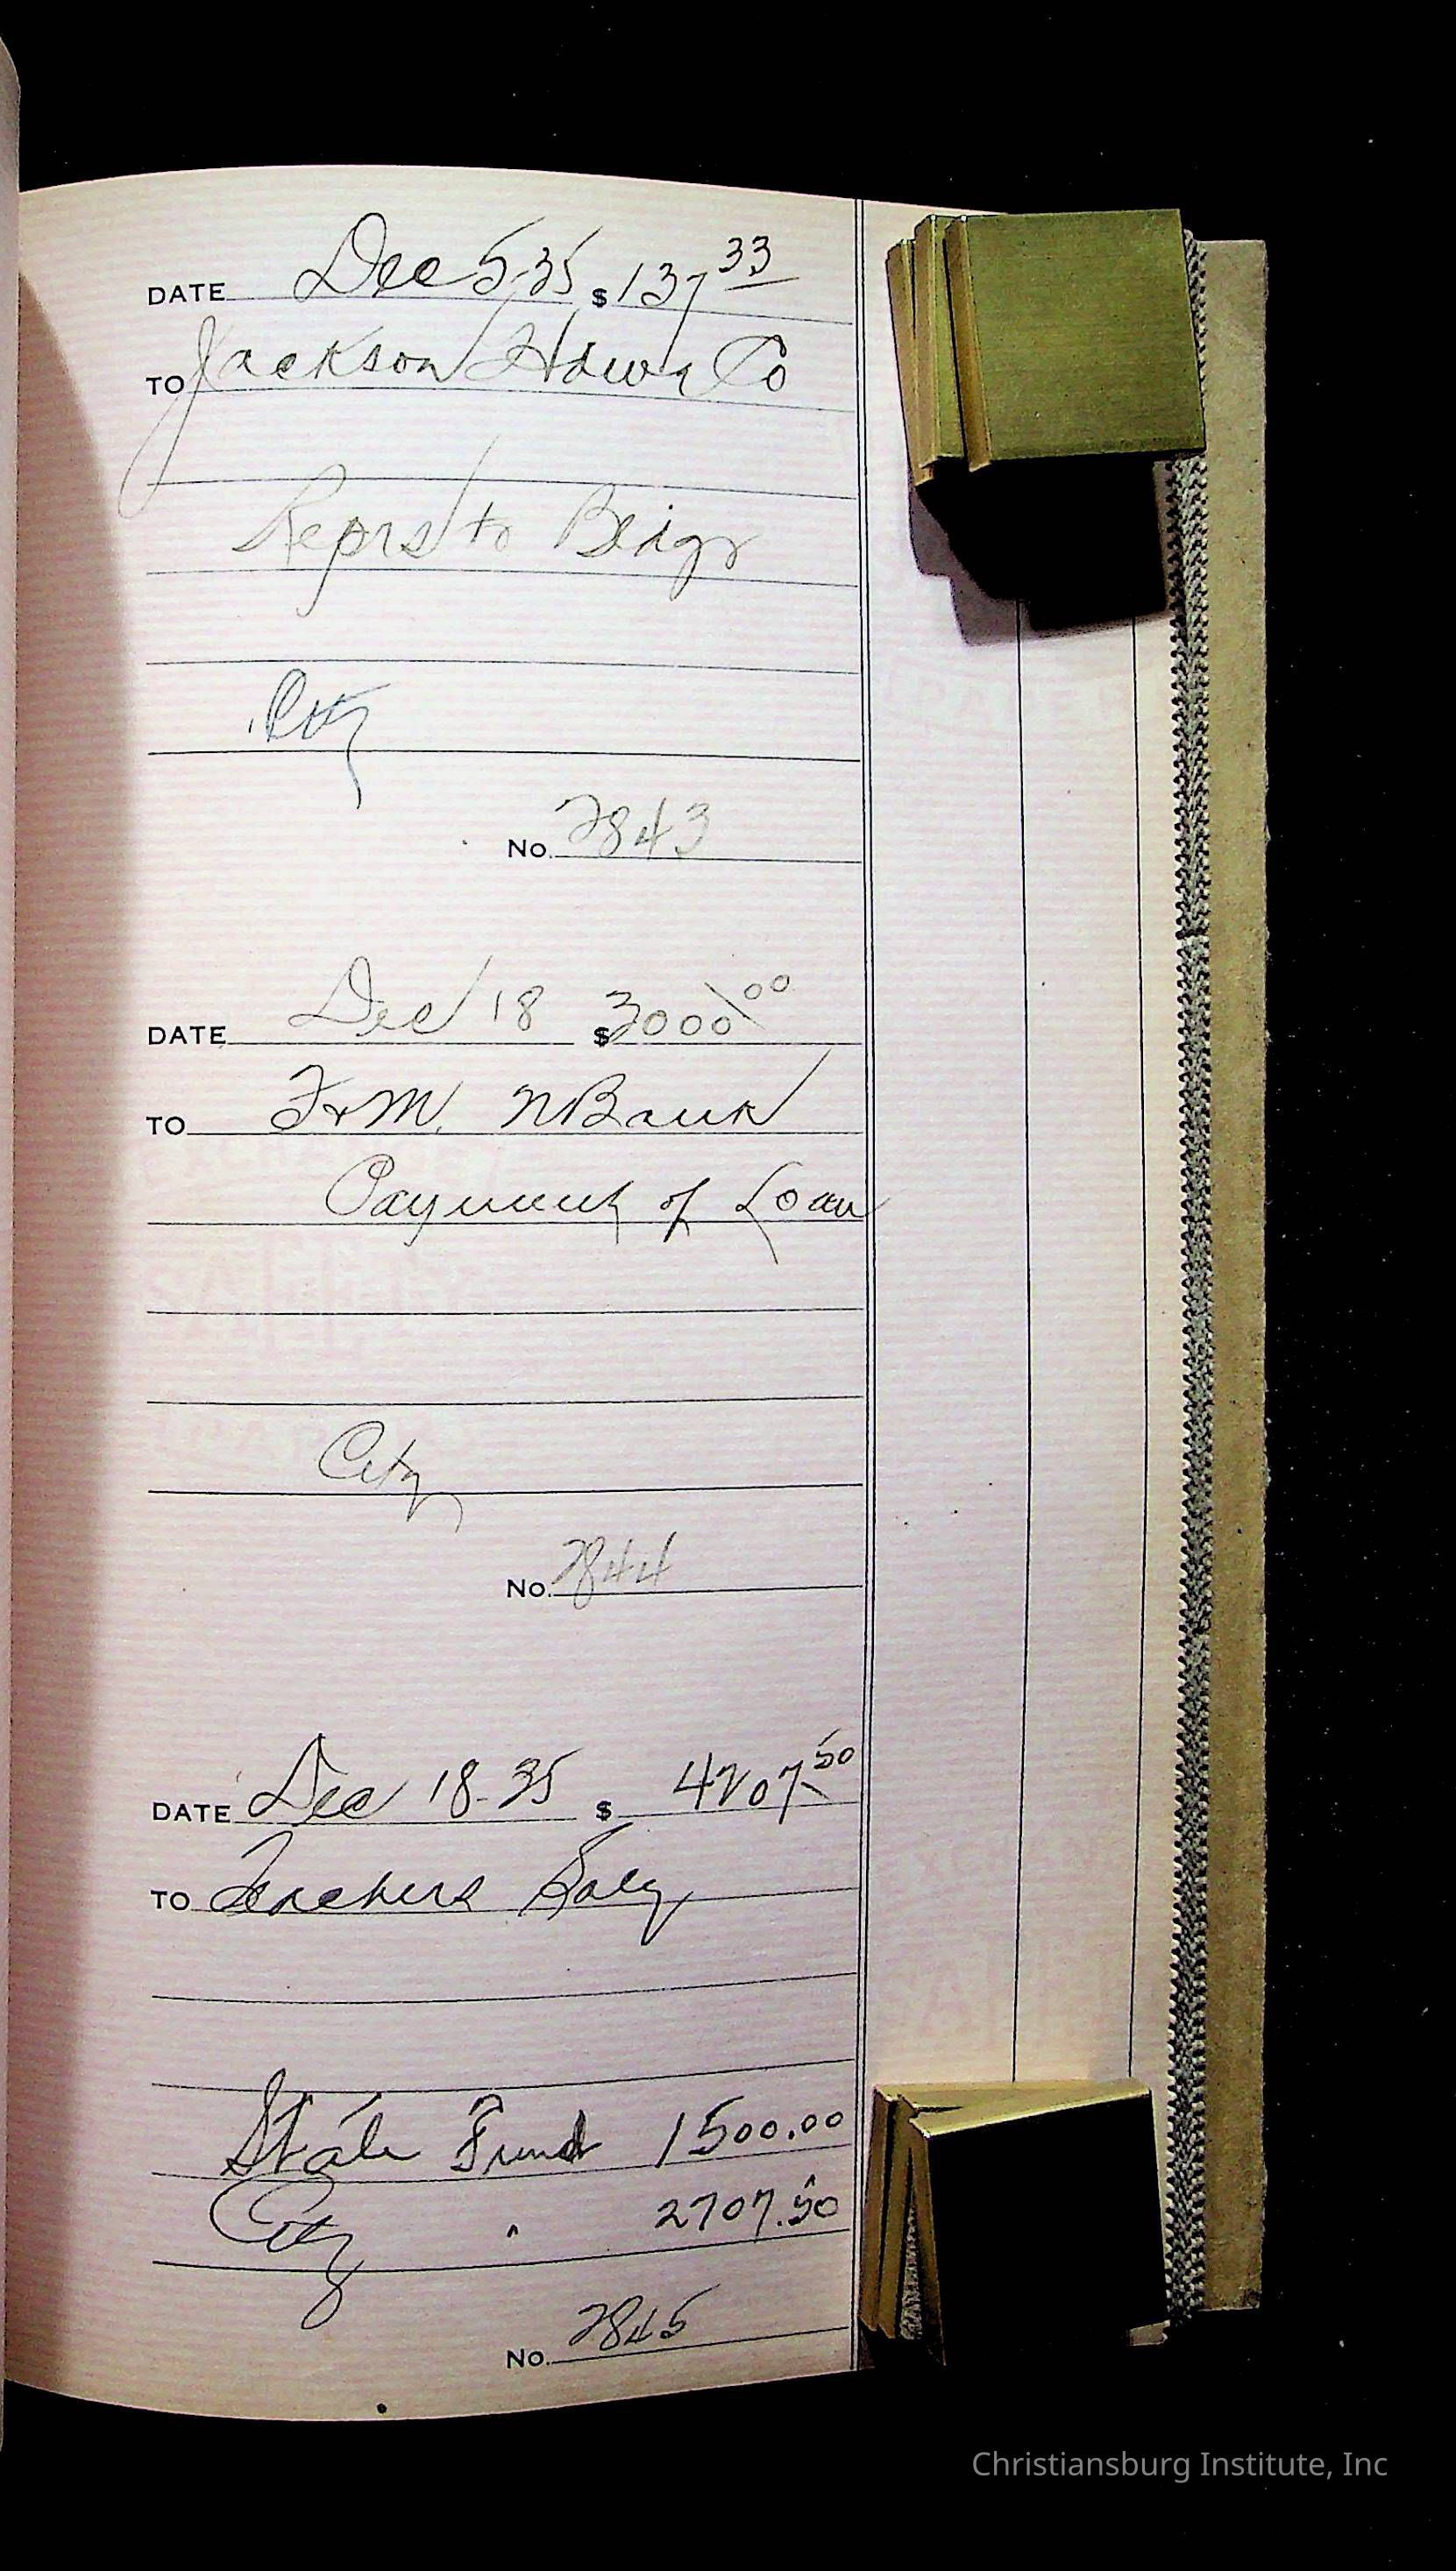 DATE Dec 5-35 $ 137 33
TO Jackson Hdwr Co
Reprs to Bldgs
City
No. 2843
DATE Dec 18 $ 3000 00
TO F & M. N Bank
Payment of Loan
City
No. 2844
DATE Dec 18-35 $ 4207 50
TO Teachers Saly
State Fund 1500.00
City " 2707.50
No. 2845
Christiansburg Institute, Inc